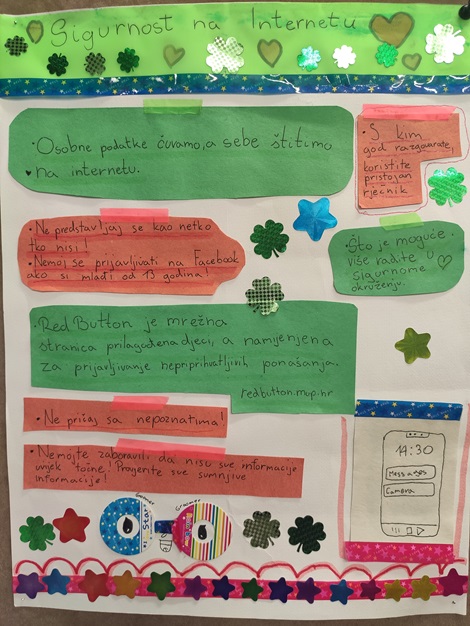 Sigurnost na Internetu
• Osobne podatke čuvamo, a sebe štitimo
na internetu.
• S kim
god razgovarate,
koristite
pristojan
rječnik
• Ne predstavljaj se kao netko
tko nisi!
• Nemoj se prijavljivati na Facebook
ako si mlađi od 13 godina!
Što je moguće
više radite u
sigurnome
okruženju.
• Red Button je mrežna
stranica prilagođena djeci, a namijenjena
za prijavljivanje neprihvatljivih ponašanja.
redbutton.mup.hr
• Ne pričaj sa nepoznatima!
• Nemojte zaboraviti da nisu sve informacije
uvijek točne! Provjerite sve sumnjive
informacije!
14:30
Messages
Camera
Gramer
Star